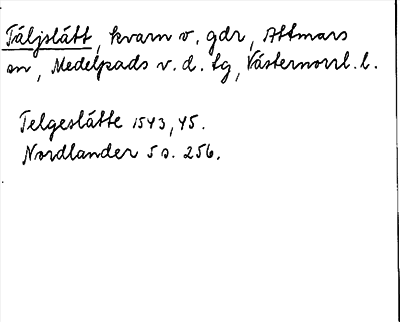 Täljslätt, kvarn v. gdr, Attmars
sn, Medelpads v. d. tg, Västernorrl. l.
Telgeslätte 1543, 45.
Nordlander 5 s. 256.